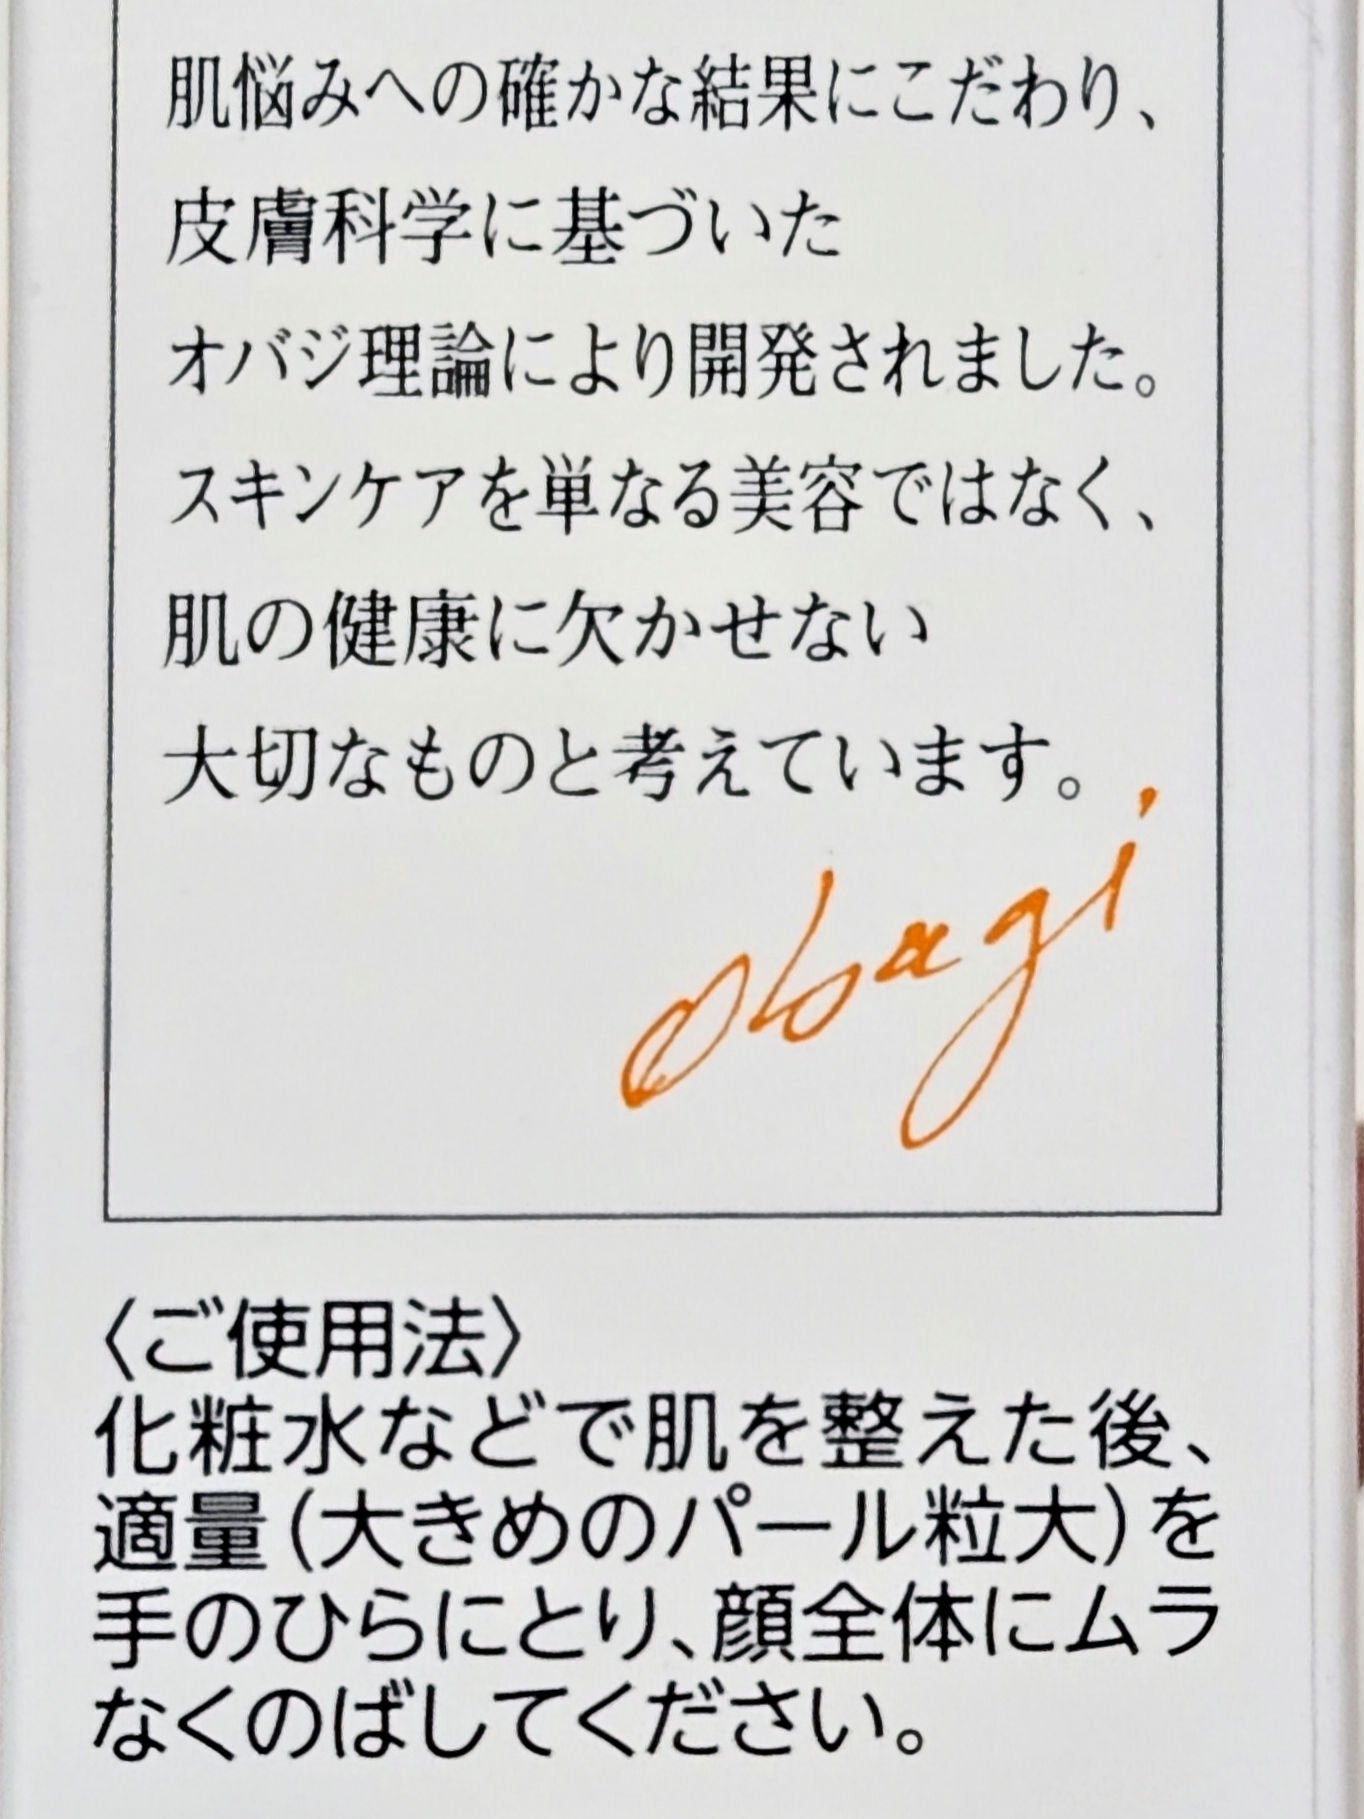 肌悩みへの確かな結果にこだわり、
皮膚科学に基づいた
オバジ理論により開発されました。
スキンケアを単なる美容ではなく、
肌の健康に欠かせない
大切なものと考えています。
obagi
〈ご使用法〉
化粧水などで肌を整えた後、
適量(大きめのパール粒大)を
手のひらにとり、顔全体にムラ
なくのばしてください。